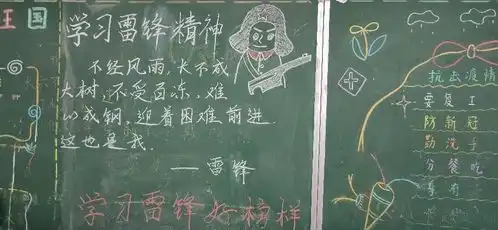 王国
学习雷锋精神
不经风雨,长不成
大树,不受百冻,难
以成钢,迎着困难前进,
这也是我,
—雷锋
学习雷锋好榜样
抗击疫情
要复工
防新冠
勤洗手
分餐吃